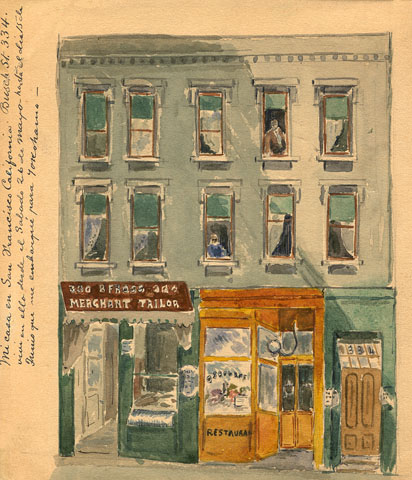 Mi casa en San Francisco California Busch St 334.
viví en ella desde el Sabado 26 de Mayo hasta el día 5 de
Junio que me embarqué para Yokohama —
MERCHANT TAILOR
RESTAURAN
334